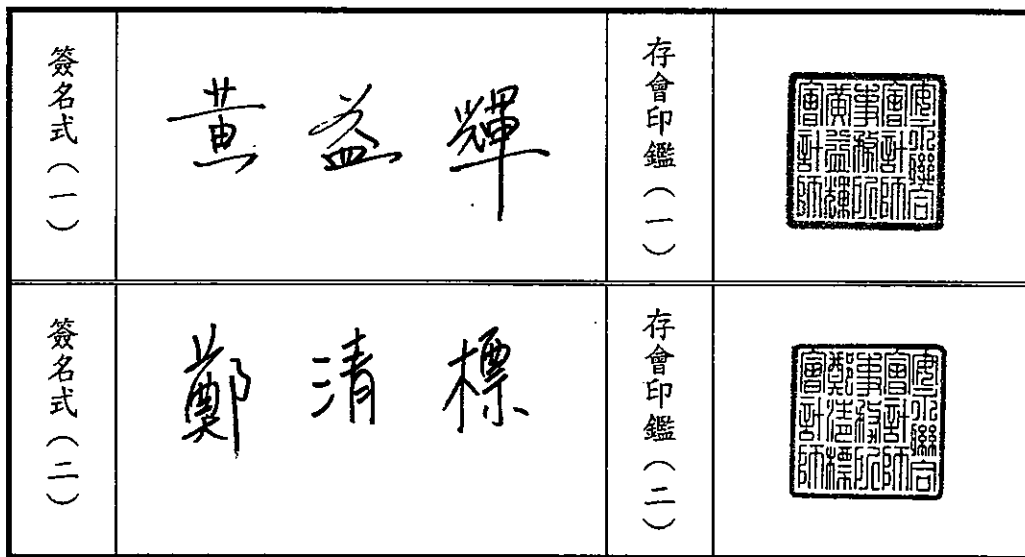 簽名式(一)
黃益輝
存會印鑑(一)
安永聯合
會計師
事務所
黃益輝
會計師
簽名式(二)
鄭清標
存會印鑑(二)
安永聯合
會計師
事務所
鄭清標
會計師